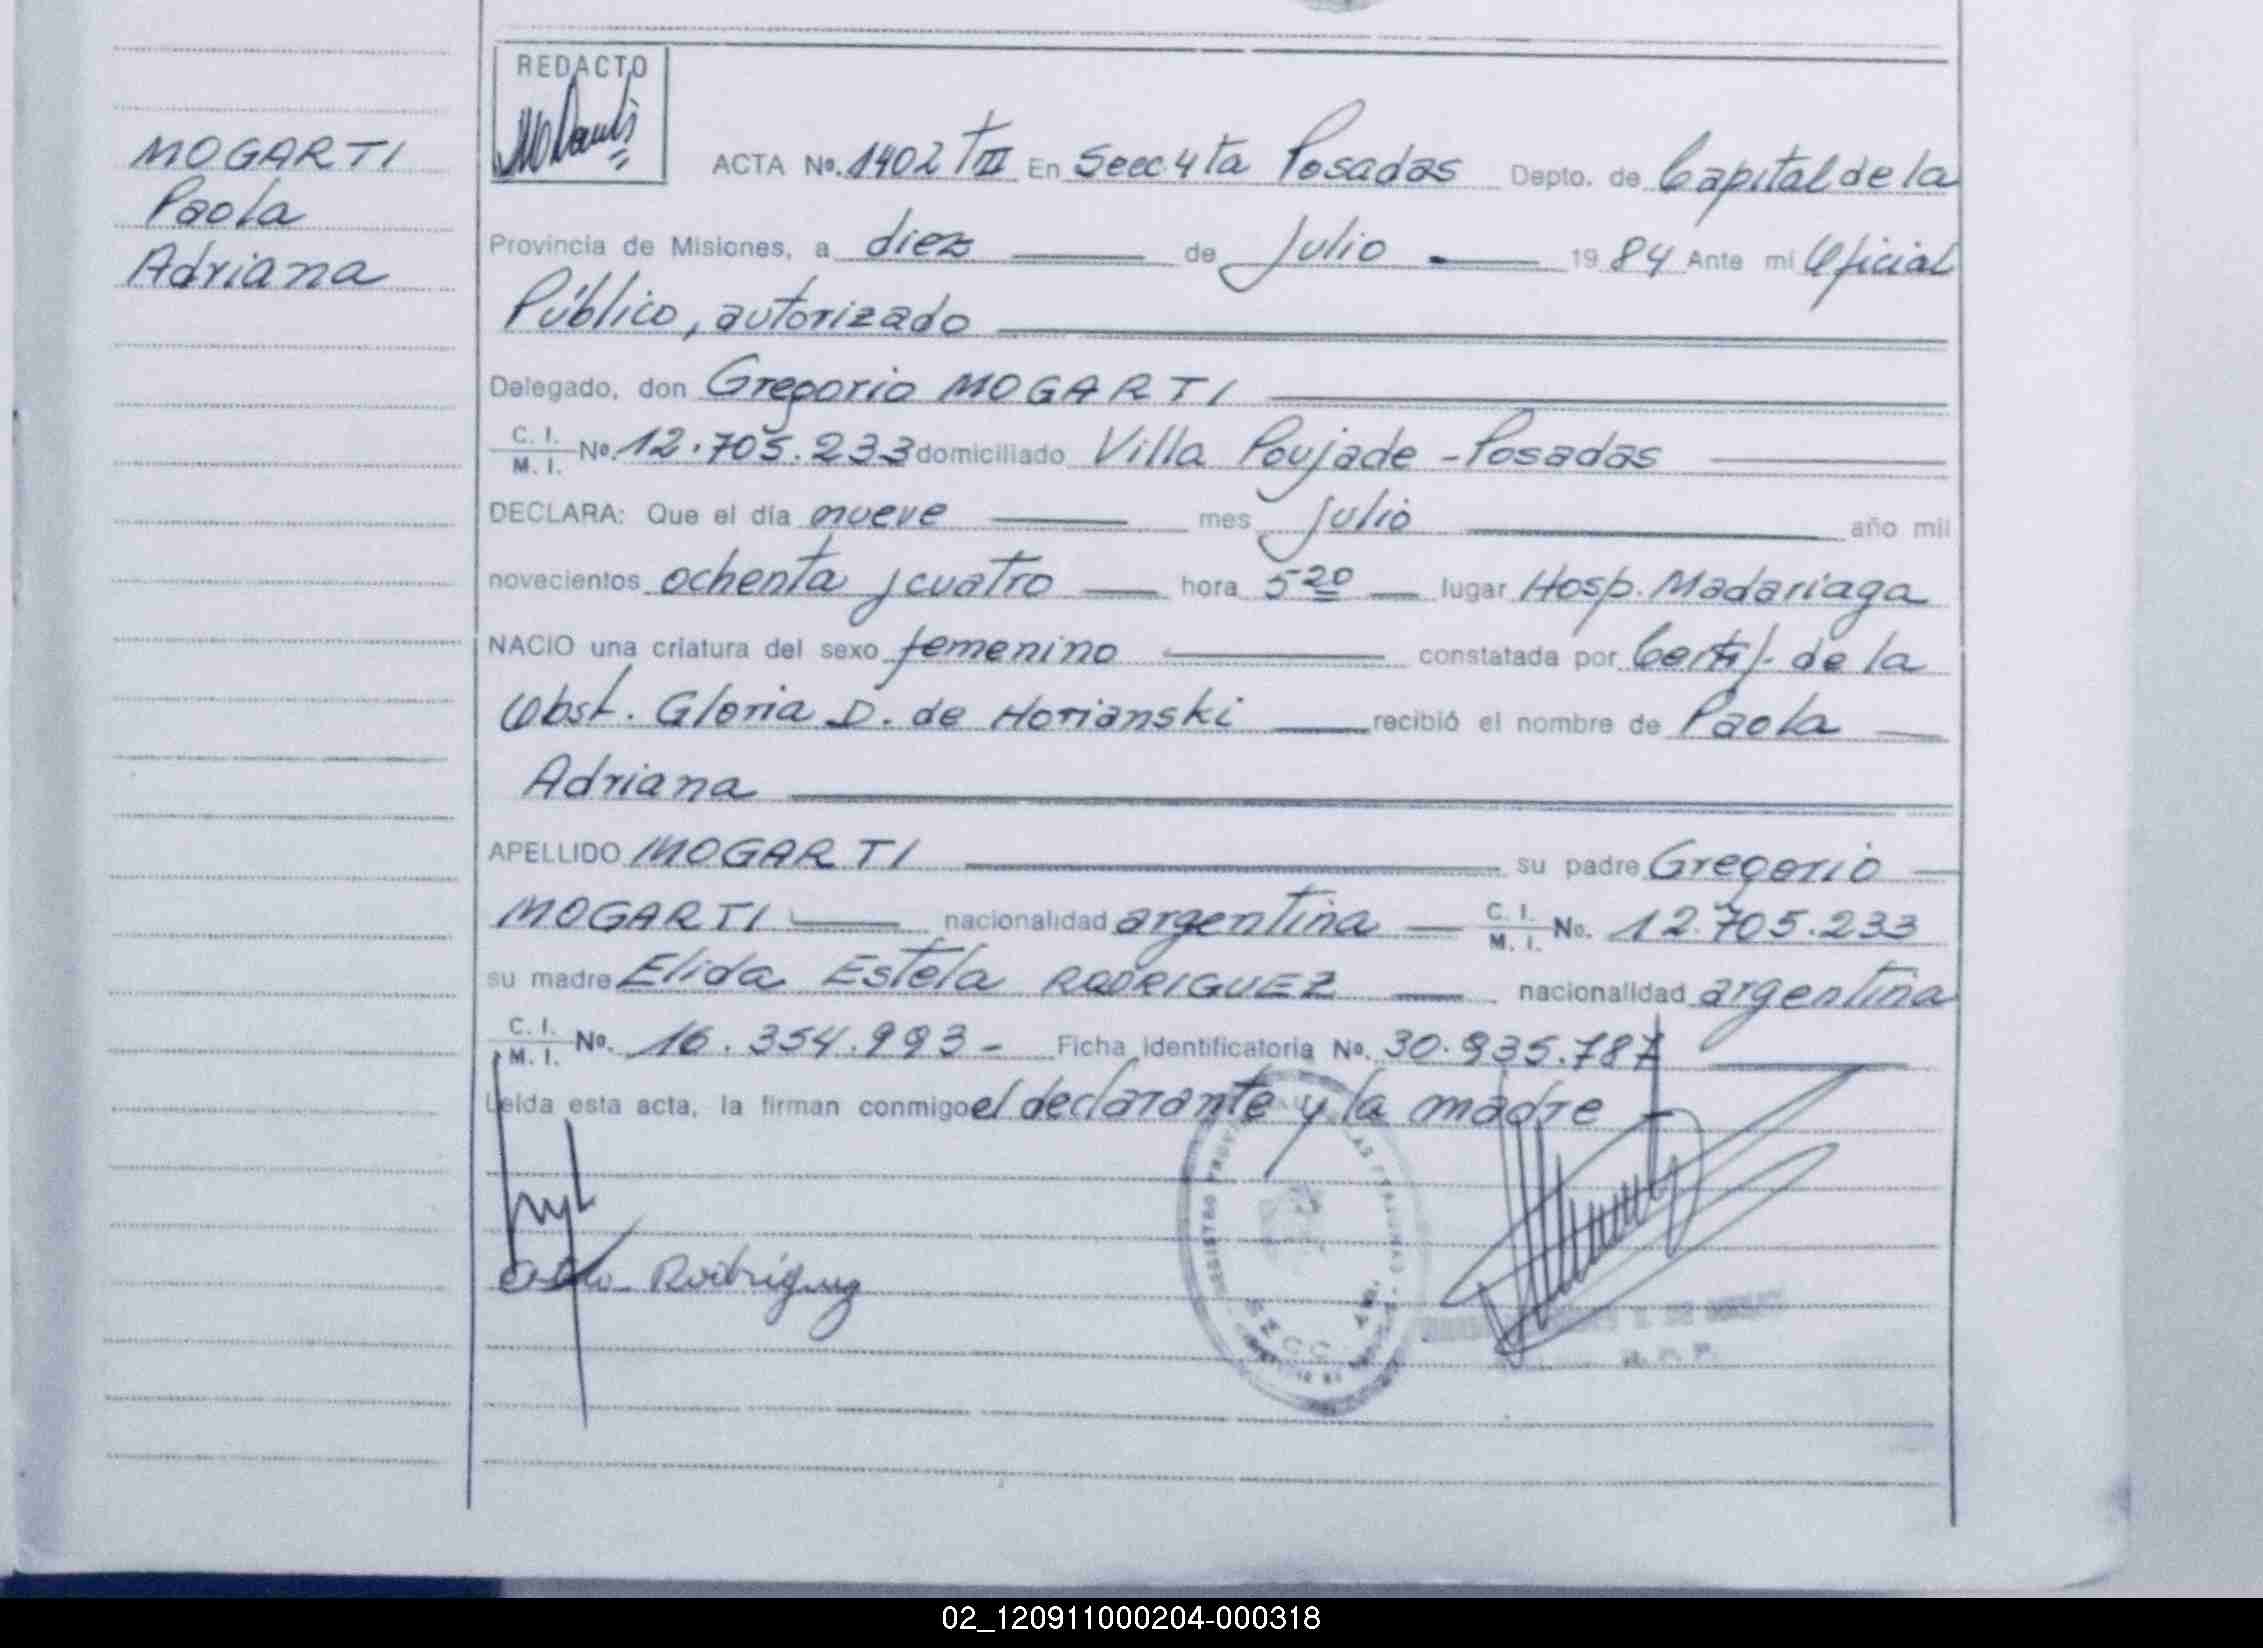 REDACTO
MOGARTI
Paola
Adriana
ACTA Nº. 1402 TIII En Secc. 4ta Posadas Depto. de Capital de la
Provincia de Misiones, a diez de Julio 1984 Ante mi Oficial
Público, autorizado
Delegado, don Gregorio MOGARTI
C. I. M. I. Nº. 12.705.233 domiciliado Villa Poujade - Posadas
DECLARA: Que el día nueve mes Julio año mil
novecientos ochenta y cuatro hora 5 20 lugar Hosp. Madariaga
NACIO una criatura del sexo femenino constatada por Certif. de la
Obst. Gloria D. de Horianski recibió el nombre de Paola
Adriana
APELLIDO MOGARTI su padre Gregorio
MOGARTI nacionalidad argentina C. I. M. I. Nº. 12.705.233
su madre Elida Estela RODRIGUEZ nacionalidad argentina
C. I. M. I. Nº. 16.354.993 - Ficha identificatoria Nº. 30.935.787
Leída esta acta, la firman conmigo el declarante y la madre -
Rodriguez
REGISTRO
SECC
02_120911000204-000318